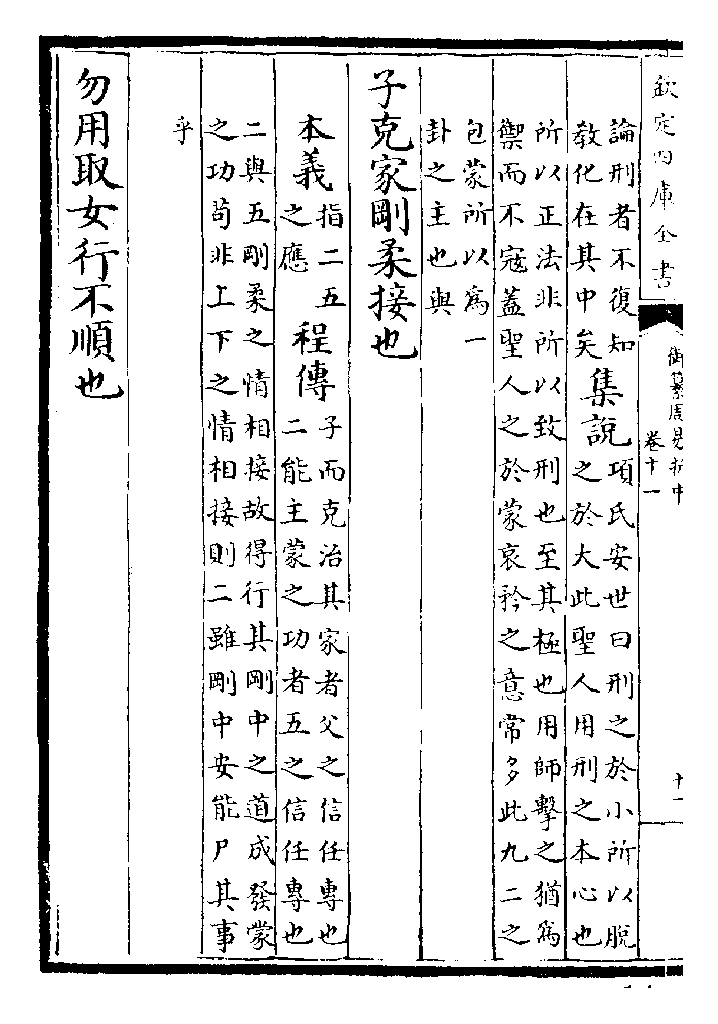 欽定四庫全書
御纂周易折中
卷十一
十一
論刑者不復知
教化在其中矣
集說
項氏安世曰刑之於小所以脫
之於大此聖人用刑之本心也
所以正法非所以致刑也至其極也用師擊之猶為
禦而不寇蓋聖人之於蒙哀矜之意常多此九二之
包蒙所以為一
卦之主也與
子克家剛柔接也
本義
指二五
之應
程傳
子而克治其家者父之信任專也
二能主蒙之功者五之信任專也
二與五剛柔之情相接故得行其剛中之道成發蒙
之功苟非上下之情相接則二雖剛中安能尸其事
乎
勿用取女行不順也